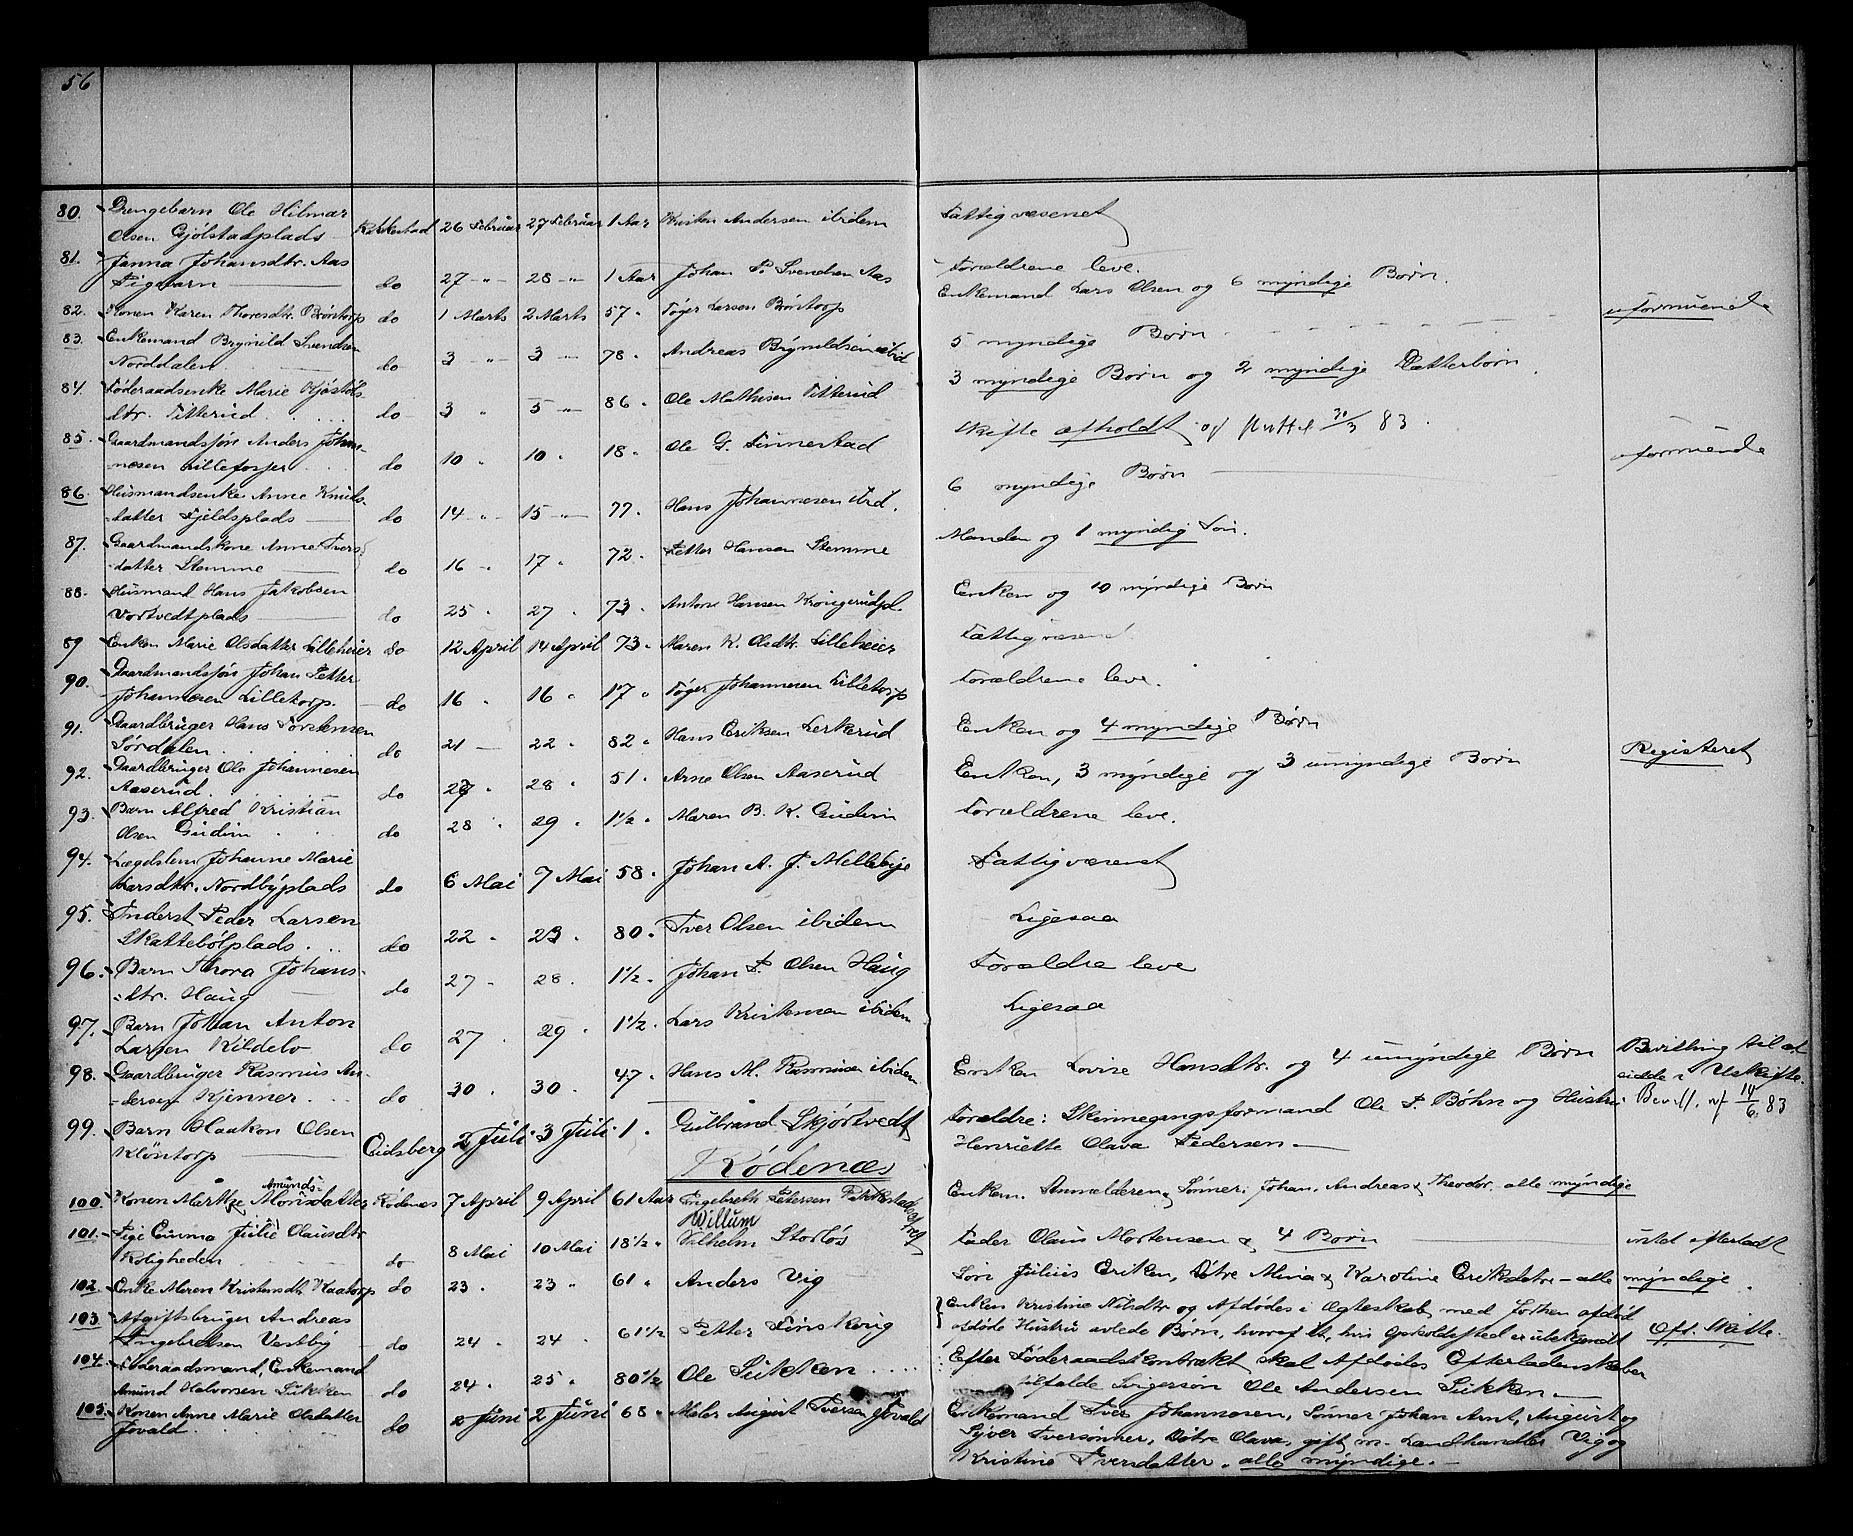 56
80. Drengebarn Ole Hilmar
Olsen Gjölstadplads Rakkestad 26 Februar 27 Februar 1 Aar Kristen Andersen ibidem Fattigvæsenet
81. Janna Johansdtr. Aas
Pigebarn do 27 -"- 28 -"- 1 Aar Johan P. Svendsen Aas Forældrene leve.
82. Konen Karen Thoresdtr. Bröntorp do 1 Marts 2 Marts 57 " Töger Larsen Bröntorp Enkemand Lars Olsen og 6 myndige Börn. uformuende
83. Enkemand Brynild Svendsen
Norddalen do 3 -"- 3 -"- 78 " Andreas Brynildsen ibid 5 myndige Börn
84. Föderaadsenke Marie
dtr. Titterud do 3 " 5 -"- 86 " Ole Mathisen Titterud 3 myndige Börn og 2 myndige Datterbörn.
85. Gaardmandssön Anders Johan-
nesen Lilletorp do 10 " 10 " 18 " Ole G. Finnestad Skifte afholdt og sluttet 30/3 83.
86. Husmandsenke Anne Knuds-
datter Fjeldsplads do 14 -"- 15 -"- 77 " Hans Johannesen ibid. 6 myndige Börn uformuende
87. Gaardmandskone Anne Ivers-
datter Stemme do 16 " 17 " 72 " Petter Hansen Stemme Manden og 1 myndig Sön.
88. Husmand Hans Jakobsen
Vortvedtplads do 25 " 27 " 73 " Anton Hansen Krongerudpl. Enken og 10 myndige Börn
89 Enken Marie Olsdatter Lilleheier do 12 April 14 April 73 " Maren K. Olsdtr. Lilleheier Fattigvæsenet
90. Gaardmandssön Johan Petter
Johannesen Lilletorp. do 16 " 16 " 17 " Töger Johannesen Lilletorp Forældrene leve.
91. Gaardbruger Hans Torstensen
Sördalen do 21 — 22 " 82 " Hans Eriksen Lerkerud Enken og 4 myndige Börn
92. Gaardbruger Ole Johannesen
Aaserud do 27 " 28 " 51 " Arne Olsen Aaserud Enken, 3 myndige og 3 umyndige Börn Registeret
93. Barn Alfred Kristian
Olsen Gudim do 28 " 29 " 1½ " Maren B. K. Gudim Forældrene leve.
94. Lægdslem Johanne Marie
Larsdtr. Nordbyplads do 6 Mai 7 Mai 58 " Johan A. J. Mellebye Fattigvæsenet
95. Inderst Peder Larsen
Skattebölplads do 22 " 23 " 80 " Iver Olsen ibidem Ligesaa
96. Barn Thora Johans-
dtr. Haug do 27 " 28 " 1½ " Johan P. Olsen Haug Forældre leve
97. Barn Johan Anton
Larsen Kildebo do 27 " 29 " 1½ " Lars Kristensen ibidem Ligesaa
98. Gaardbruger Rasmus An-
dersen Kjenner do 30 " 30 " 47 " Hans M. Rasmusen ibidem Enken Lovise Hansdtr. og 4 umyndige Börn Bevilling til at
sidde i Uskifte.
Bevill. af 14/6 83
99. Barn Haakon Olsen
Klöntorp Eidsberg 2 Juli 3 Juli 1 " Gulbrand Skjörtvedt Forældre: Skinnegangsformand Ole P. Böhn og Hustru
Henriette Olava Pedersen
Rödenæs
100. Konen Marthe Amunds- datter Rödenæs 7 April 9 April 61 Aar Engebreth Petersen Enkem. Anmelderen, Sönner: Johan, Andreas & Theodor, alle myndige
101. Pige Emma Julie Olausdtr
Roligheden do 8 Mai 10 Mai 18½ " Willum Vilhelm Storlös Fader Olaus Mortensen & 4 Börn intet efterladt
102. Enke Maren Kristensdtr. Kaatorp do 23 " 23 " 61 " Anders Vig Sön Julius Eriksen, Dötre Mina & Karoline Eriksdøtre – alle myndige.
103 Afgiftsbruger Andreas
Engebretsen Vestby do 24 " 24 " 61½ " Petter Finskoug Enken Kristine Nilsdtr og Afdödes i Ægteskab med forhen afdöd
afdöde Hustru avlede Börn, hvoraf Et, hvis Opholdssted er ubekjendt Off. Skifte.
104. Föderaadsmand, Enkemand
Amund Halvorsen Sukken do 24 " 25 " 80½ " Ole Sukken Efter Föderaadskontrakt skal Afdödes Efterladenskaber
tilfalde Svigersön Ole Andersen Sukken.
105. Konen Anne Marie Olsdatter
Jovald do 2 Juni 2 Juni 68 " Maler August Iversen Jovald Enkemand Iver Johannesen, Sönner Johan Arnt, August og
Syver Iversönner, Dötre Olava, gift m. Landhandler Vig og
Kristine Iversdatter, alle myndige.